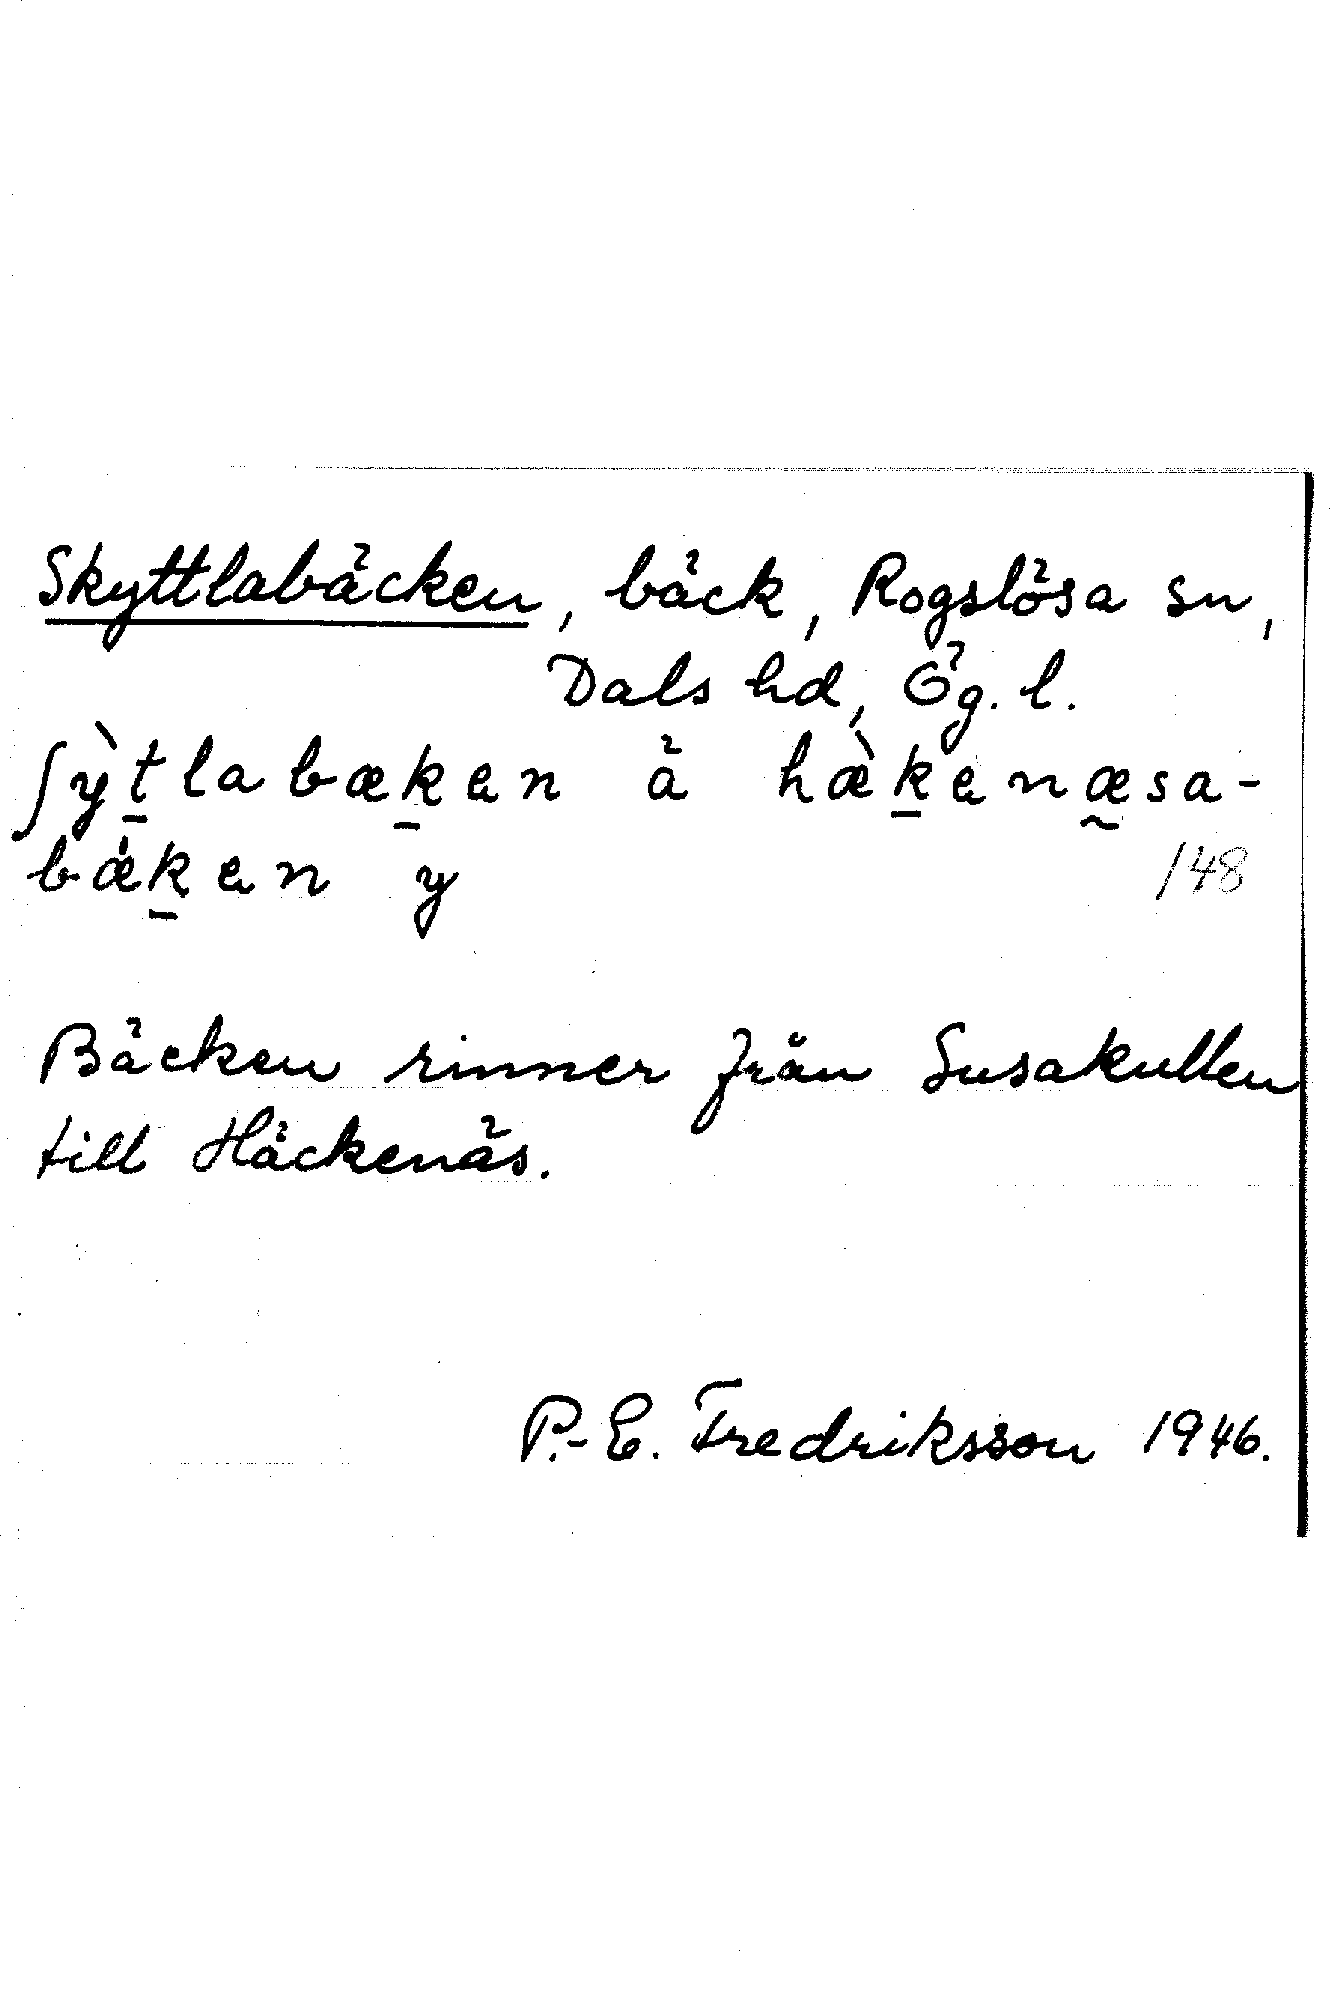 Skyttlabäcken, bäck, Rogslösa sn,
Dals hd, Ög. l.
ʃỳt̲labæk̲en ä hæ̀k̲enæ̰sa-
bǽk̲en y
148
Bäcken rinner från Susakullen
till Häckenäs.
P.-E. Fredriksson 1946.